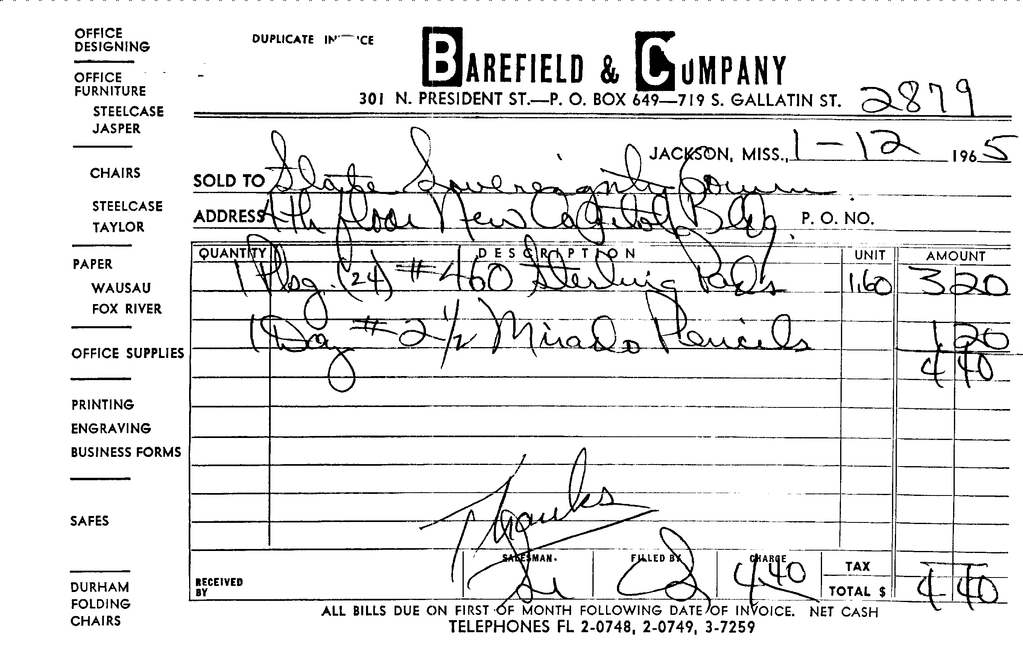 OFFICE
DESIGNING
OFFICE
FURNITURE
STEELCASE
JASPER
CHAIRS
STEELCASE
TAYLOR
PAPER
WAUSAU
FOX RIVER
OFFICE SUPPLIES
PRINTING
ENGRAVING
BUSINESS FORMS
SAFES
DURHAM
FOLDING
CHAIRS
DUPLICATE
BAREFIELD & COMPANY
301 N. PRESIDENT ST.—P. O. BOX 649—719 S. GALLATIN ST. 2879
JACKSON, MISS., 1-12 1965
SOLD TO State Sovereignty Comm
ADDRESS 4th floor New Capitol Bldg. P. O. NO.
QUANTITY DESCRIPTION UNIT AMOUNT
1 Pkg. (24) #460 Sterling Pads 1.60 3 20
1 Doz #2 1/2 Mirado Pencils 1 20
4 40
Thanks
SALESMAN. FILLED BY CHARGE TAX
RECEIVED
BY 4.40 TOTAL $ 4 40
ALL BILLS DUE ON FIRST OF MONTH FOLLOWING DATE OF INVOICE. NET CASH
TELEPHONES FL 2-0748, 2-0749, 3-7259